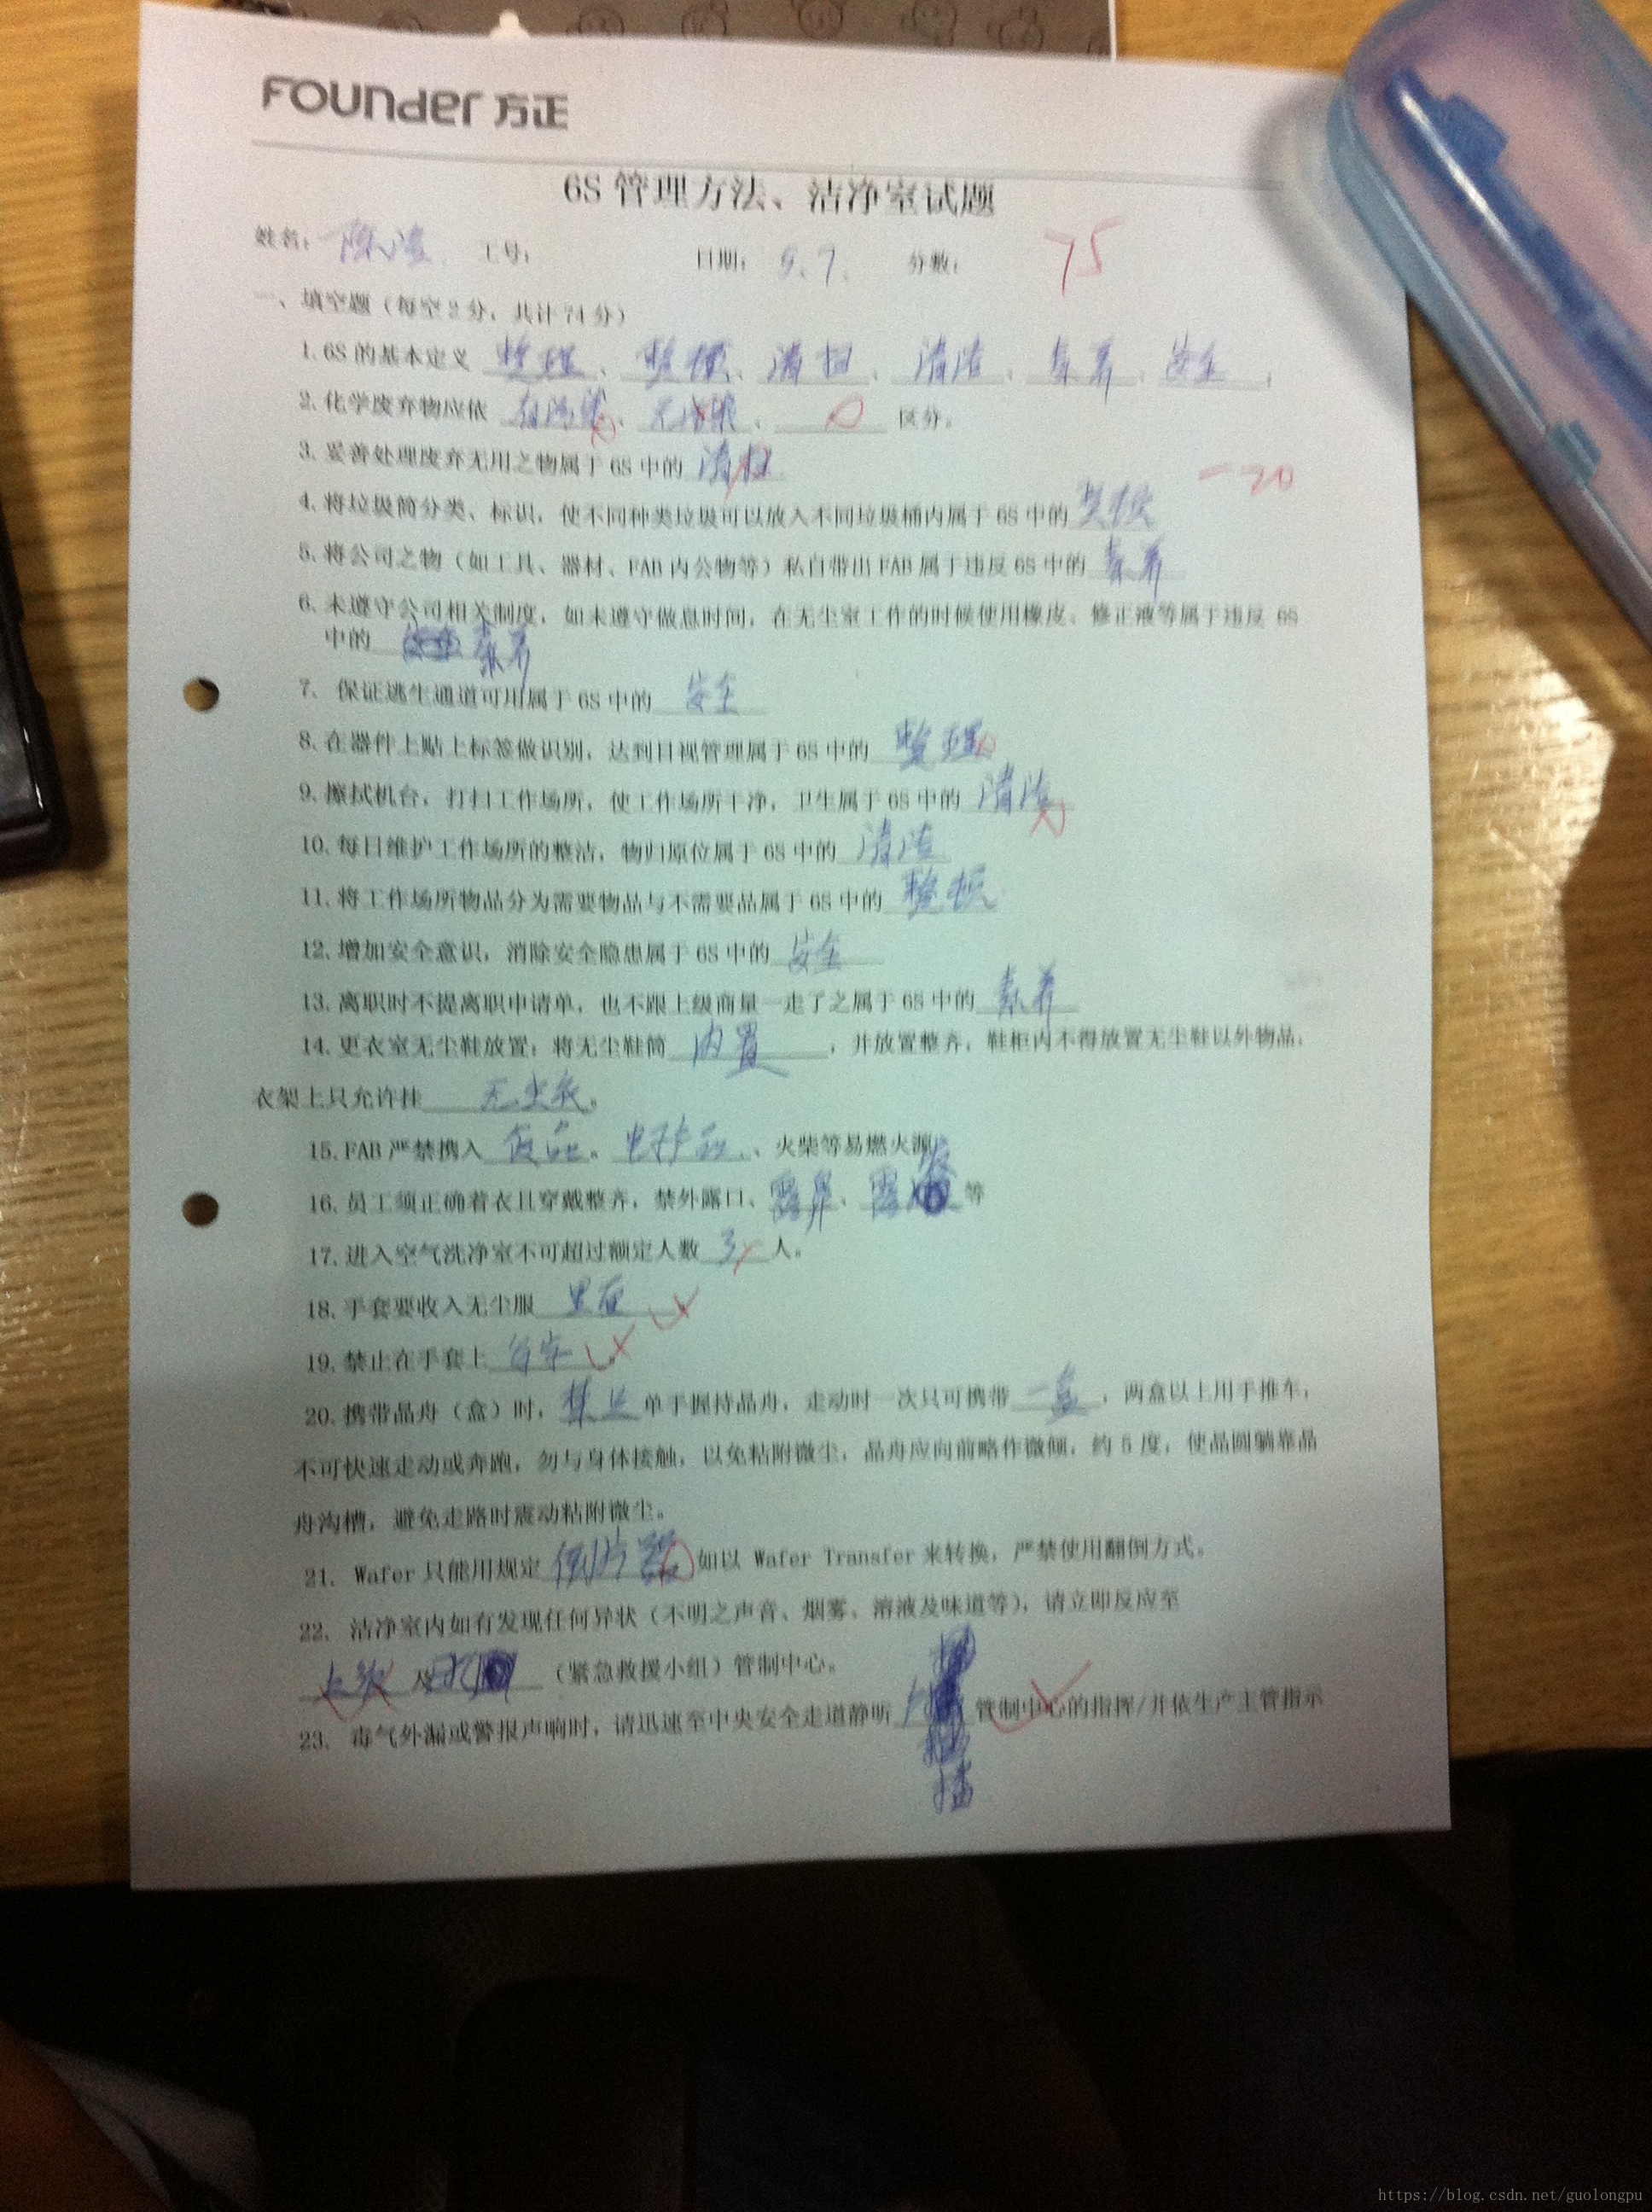 Founder 方正
6S 管理方法、洁净室试题
姓名： 工号： 日期：5.7. 分数：75
一、填空题（每空2分，共计74分）
1.6S的基本定义 整理、整顿、清扫、清洁、素养、安全；
2.化学废弃物应依 、 、 区分。
3.妥善处理废弃无用之物属于6S中的 清扫
-20
4.将垃圾筒分类、标识，使不同种类垃圾可以放入不同垃圾桶内属于6S中的 整顿
5.将公司之物（如工具、器材、FAB内公物等）私自带出FAB属于违反6S中的 素养
6.未遵守公司相关制度，如未遵守做息时间，在无尘室工作的时候使用橡皮、修正液等属于违反6S
中的 素养
7. 保证逃生通道可用属于6S中的 安全
8.在器件上贴上标签做识别，达到目视管理属于6S中的 整理
9.擦拭机台，打扫工作场所，使工作场所干净，卫生属于6S中的 清洁
10.每日维护工作场所的整洁，物归原位属于6S中的 清洁
11.将工作场所物品分为需要物品与不需要品属于6S中的 整顿
12.增加安全意识，消除安全隐患属于6S中的 安全
13.离职时不提离职申请单，也不跟上级商量一走了之属于6S中的 素养
14.更衣室无尘鞋放置：将无尘鞋筒 内置 ，并放置整齐，鞋柜内不得放置无尘鞋以外物品，
衣架上只允许挂 无尘衣。
15.FAB严禁携入 食品、电子产品、火柴等易燃火源
16.员工须正确着衣且穿戴整齐，禁外露口、露鼻、露发等
17.进入空气洗净室不可超过额定人数 3 人。
18.手套要收入无尘服 里面
19.禁止在手套上 写字
20.携带晶舟（盒）时，禁止单手握持晶舟，走动时一次只可携带 一盒 ，两盒以上用手推车，
不可快速走动或奔跑，勿与身体接触，以免粘附微尘，晶舟应向前略作微倾，约5度，使晶圆躺靠晶
舟沟槽，避免走路时震动粘附微尘。
21. Wafer只能用规定 倒片器 如以 Wafer Transfer来转换，严禁使用翻倒方式。
22. 洁净室内如有发现任何异状（不明之声音、烟雾、溶液及味道等），请立即反应至
上级 及 （紧急救援小组）管制中心。
23. 毒气外漏或警报声响时，请迅速至中央安全走道静听 管制中心的指挥/并依生产主管指示
https://blog.csdn.net/guolongpu